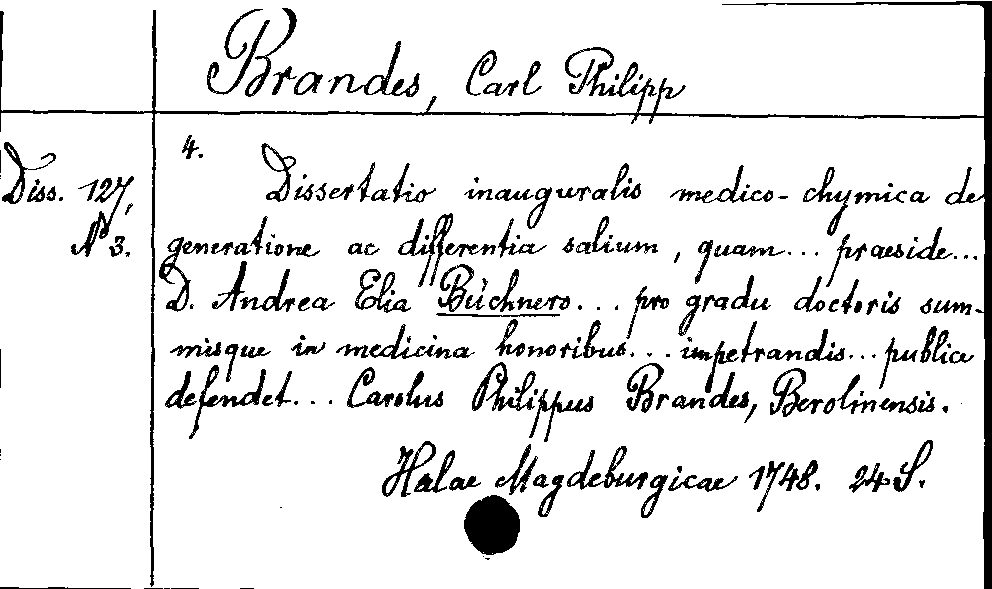 Brandes, Carl Philipp
4.
Diss. 127,
N° 3.
Dissertatio inauguralis medico-chymica de
generatione ac differentia salium, quam... praeside...
D. Andrea Elia Büchnero... pro gradu doctoris sum-
misque in medicina honoribus... impetrandis... publice
defendet... Carolus Philippus Brandes, Berolinensis.
Halae Magdeburgicae 1748. 24 S.